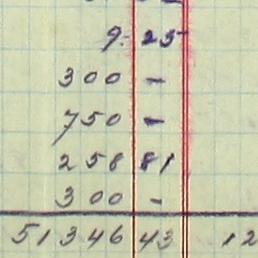 9. 25
300 -
750 -
258 81
300 -
51346 43 12